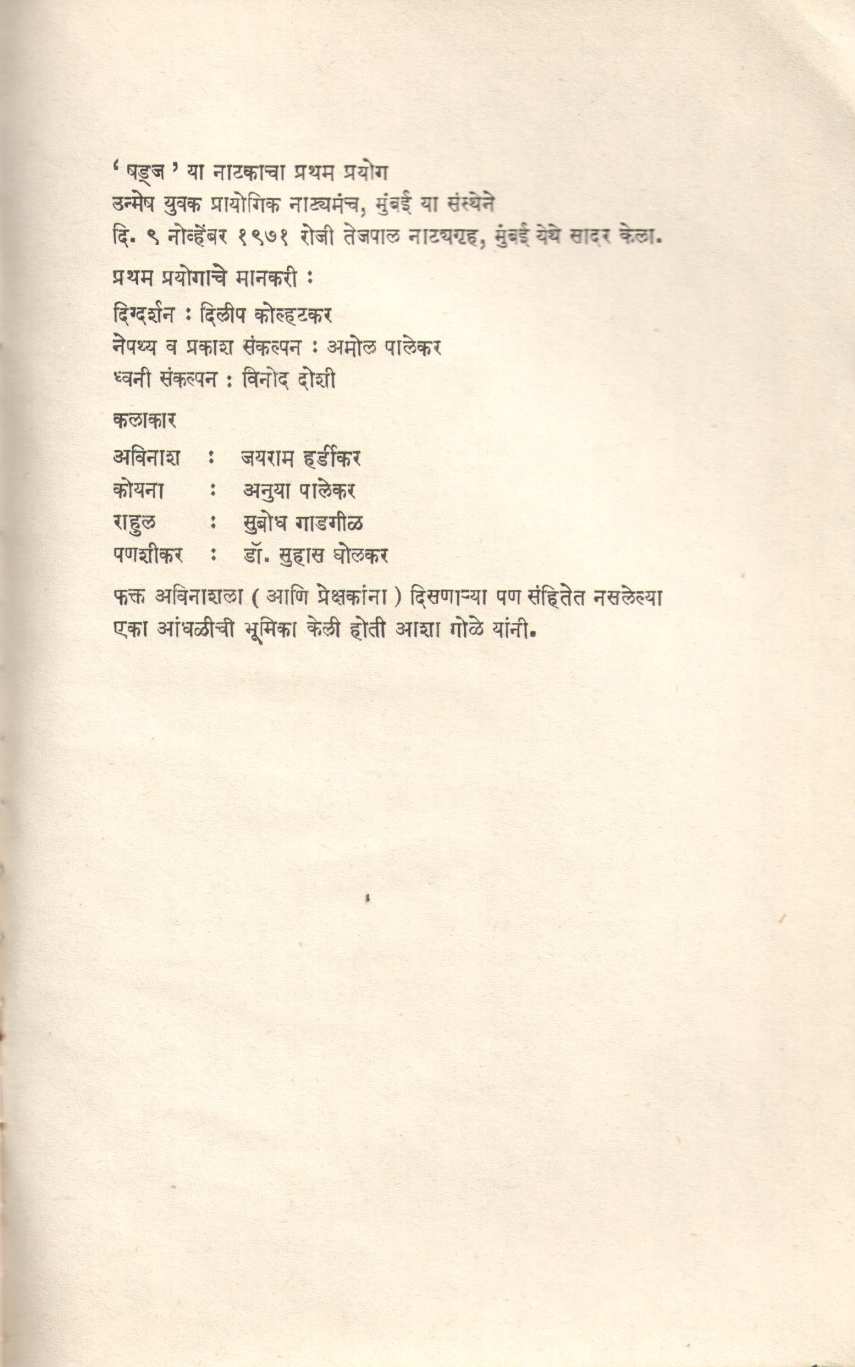 ‘ षड्ज ’ या नाटकाचा प्रथम प्रयोग
उन्मेष युवक प्रायोगिक नाट्यमंच, मुंबई या संस्थेने
दि. ९ नोव्हेंबर १९७१ रोजी तेजपाल नाट्यगृह, मुंबई येथे सादर केला.
प्रथम प्रयोगाचे मानकरी :
दिग्दर्शन : दिलीप कोल्हटकर
नेपथ्य व प्रकाश संकल्पन : अमोल पालेकर
ध्वनी संकल्पन : विनोद दोशी
कलाकार
अविनाश : जयराम हर्डीकर
कोयना : अनुया पालेकर
राहुल : सुबोध गाडगीळ
पणशीकर : डॉ. सुहास घोलकर
फक्त अविनाशला ( आणि प्रेक्षकांना ) दिसणाऱ्या पण संहितेत नसलेल्या
एका आंधळीची भूमिका केली होती आशा गोळे यांनी.